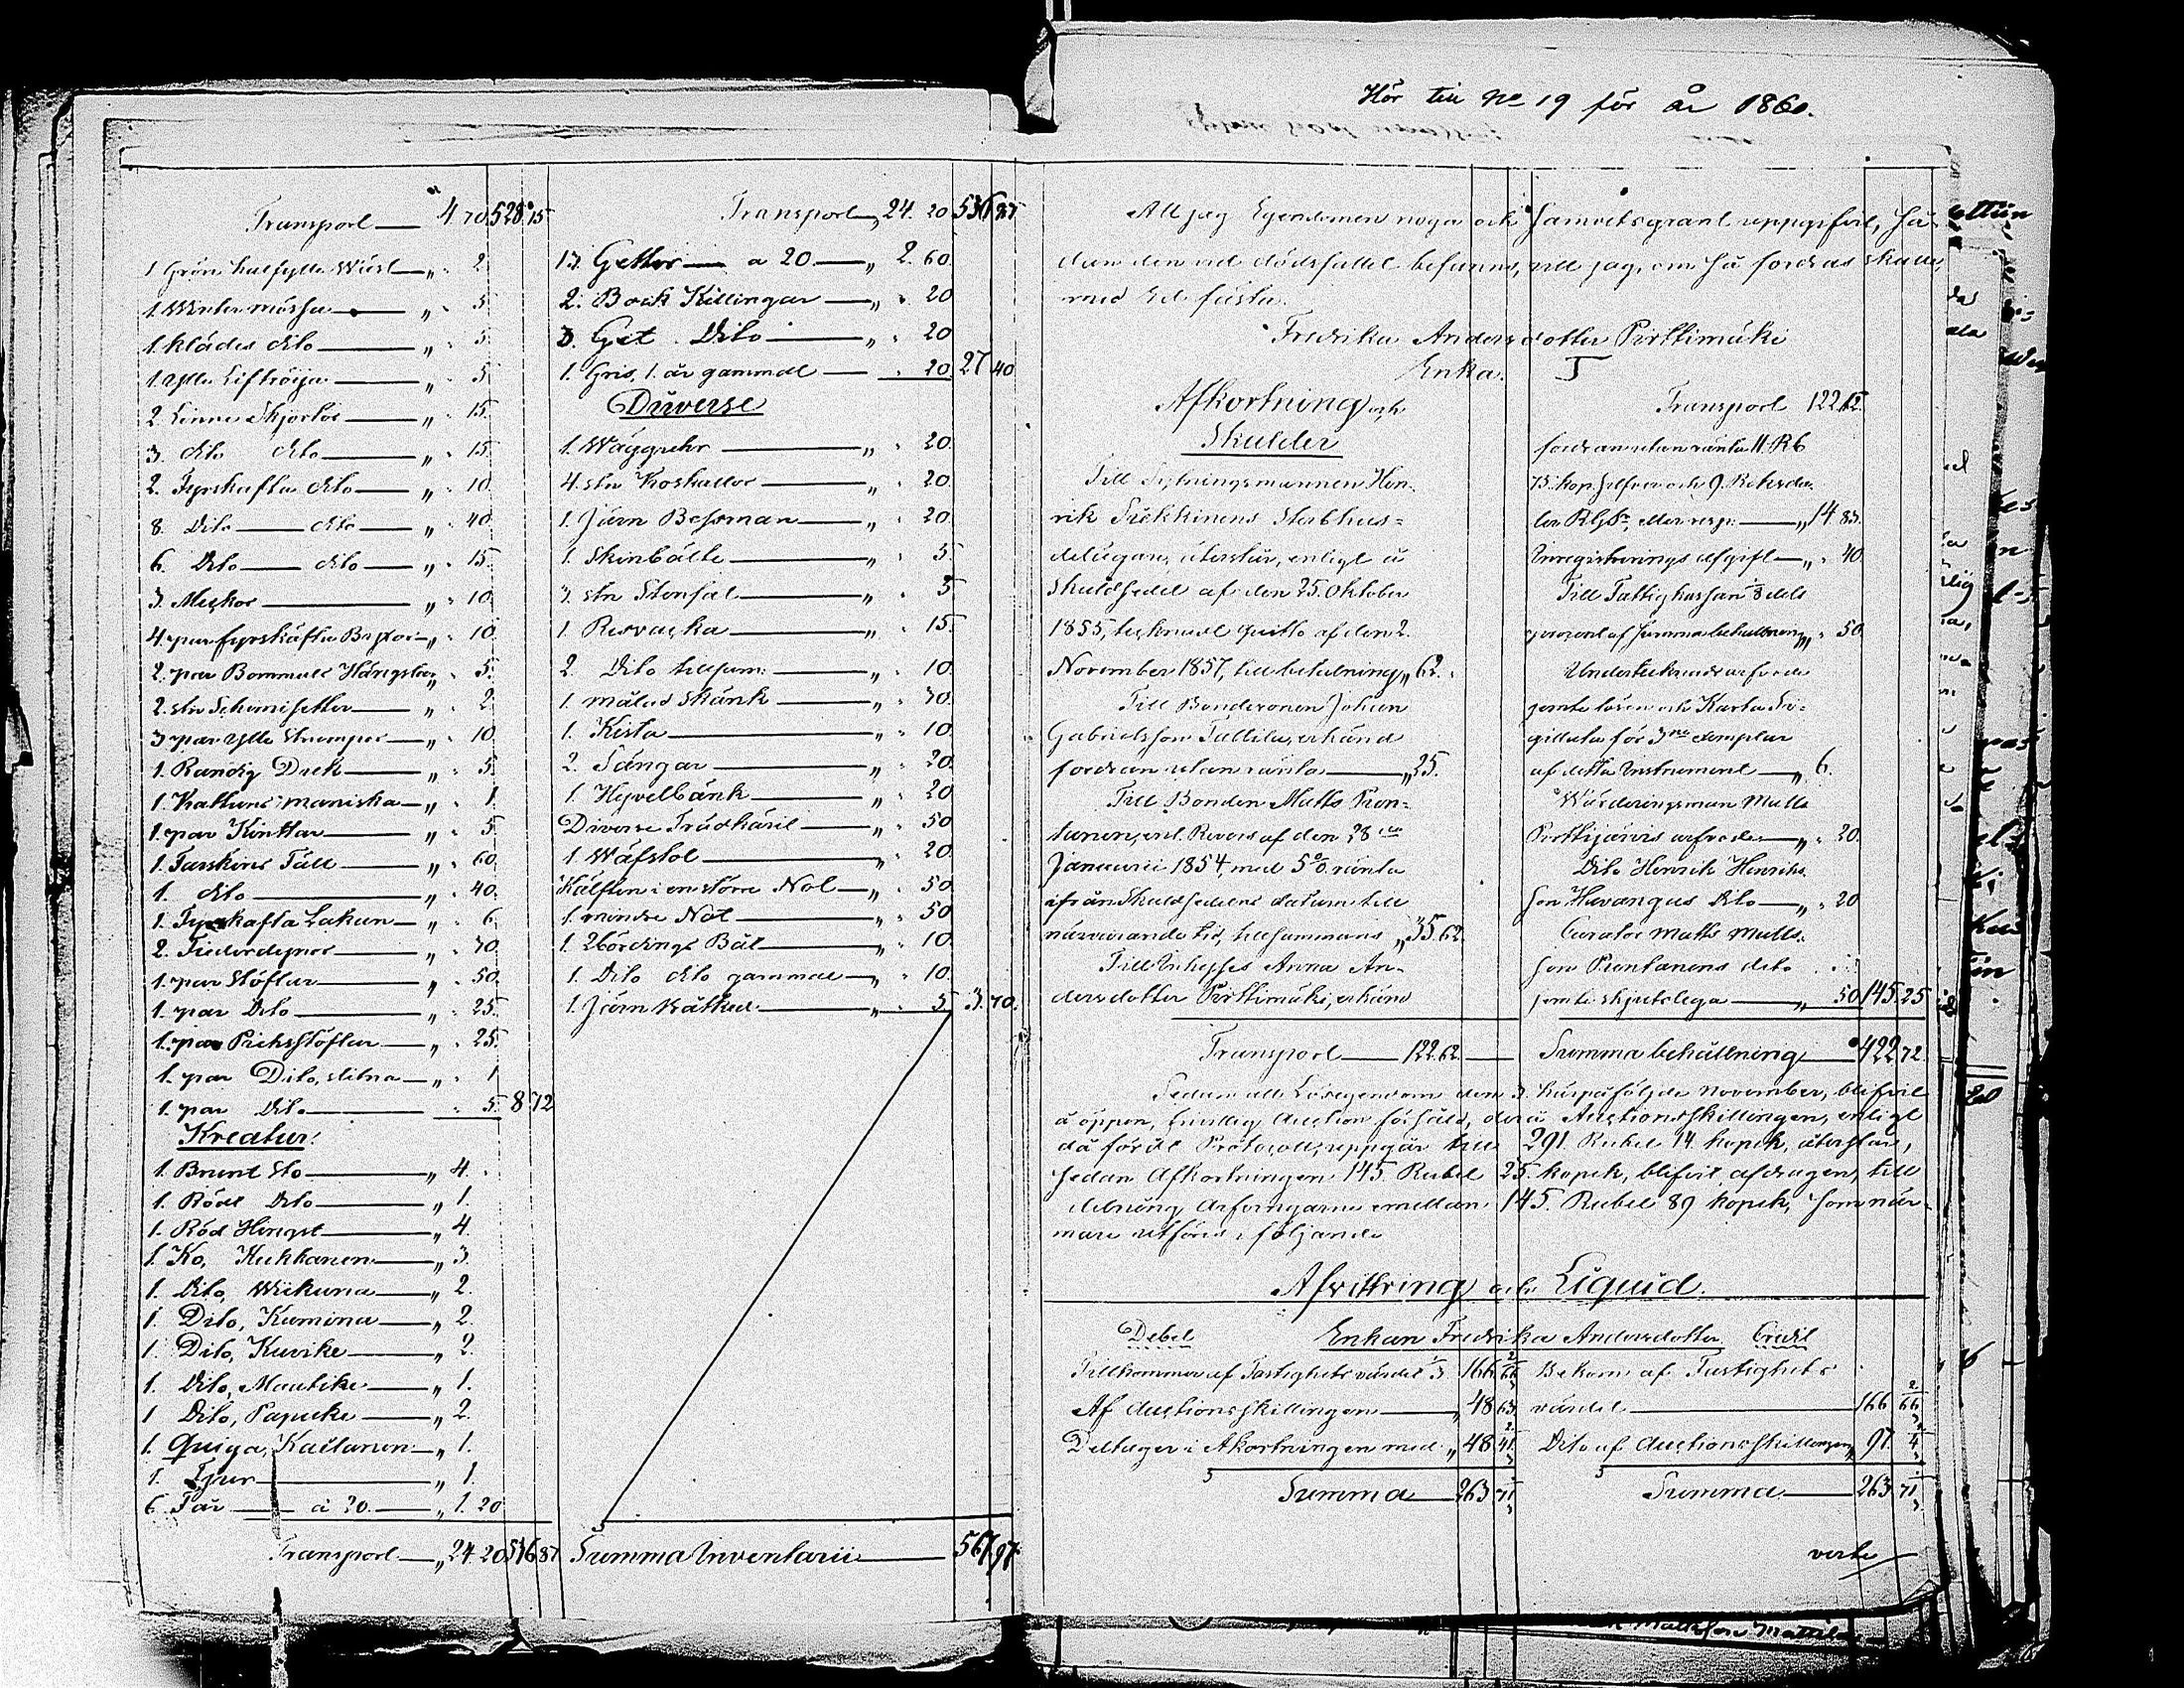 Transport — 4. 70 528. 15
1. Grön halfylle Wäst — „ 2
1. Winter mössa — „ 5
1. Klädes dito — „ 5
1. Ylle Liftröija — „ 5
2. Linne Skjortor — „ 15
3. dito dito — „ 15
2. Fyrskafta dito — „ 10
8. Dito — dito — „ 40
6. Dito — dito — „ 15
3. Myskor — „ 10
4. par fyrskäfta — „ 10
2. par Bommuls — „ 5
2. st:n Schemisetter — „ 2
3 par Ylle Strumpor — „ 10
1. Randig Drek — „ 5
1. Kattuns maniska — „ 1
1. par Kinttar — „ 5
1. Fårskins Fäll — „ 60
1. dito — „ 40
1. Fyrskafta Lakan — „ 6
2. Fiederdynor — „ 30
1. par Stöflar — „ 50
1. par Dito — „ 25
1. par Pieksstöflar — „ 25
1. par Dito, slitna — „ 1
1. par Dito — „ 5 8 72
Kreatur:
1. Brunt Sto — „ 4
1. Rödt Dito — „ 1.
1. Röd Hingst — „ 4.
1. Ko, Kukkanen — „ 3.
1. Dito, Wiekuna — „ 2.
1. Dito, Kamina — „ 2.
1. Dito, Kuvike — „ 2.
1. Dito, Mautike — „ 1.
1 Dito, Papuke — „ 2.
1. Quiga, Kailanen — „ 1.
1. Tjur — „ 1.
6. Får — à 20. — „ 1. 20
Transport — „ 24. 20 536 87
Transport „ 24. 20 536 87
13. Getter — a 20. — „ 2. 60.
2. Bock Killingar — „ 20
3. Get Dito — „ 20
1. Gris, 1. år gammal — 20. 27 40
Diverse
1. Wägguhr — „ 20.
4. st:n Koskällor — „ 20.
1. Järn Besman — „ 20
1. Skinbälte — „ 5.
3. st:n Stenfat — „ 5
1. Resväska — „ 15.
2. Dito tillsam: — „ 10.
1. målad Skänk — „ 30.
1. Kista — „ 10.
2. Sängar — „ 20.
1. Hyvelbänk — „ 20
Diverse Trädkäril — „ 50
1. Wäfstol — „ 20.
Hälften i en större Not — „ 50
1. mindre Not — „ 50
1. 2bördings Båt — „ 10.
1. Dito dito gammal — „ 10.
1. Järn Kätked — „ 5 3. 70.
Summa Inventarii — 567, 97
Hör till No 19 för år 1860.
Att jag Egendomen noga och samvetsgrant uppgifvit, så-
dan den vid dödsfallet befanns, vill jag, om så fordras skulle,
med Ed fästa.
Fredrika Andersdotter Pirttimäki
Enka.
Afkortning och
Skulder
Till Sytningsmannen Hen-
rik Siekkinens Sterbhus=
delägare, återstår, enligt å
Skuldsedel af den 25. Oktober
1855, tecknadt Quitto af den 2.
November 1857, till betalning „ 62.
Till Bondesonen Johan
Gabrielsson Tallila, erkänd
fordran utan ränta — „ 25.
Till Bonden Matts Pien=
tanen, enl. Revers af den 28de
Januarii 1854, med 5% ränta
ifrån Skuldsedelns datum till
närvarande tid, tillsammans „ 35. 62.
Till Inhyses Anna An-
dersdotter Pirttimäki, erkänd
Transport — 122. 62.
Transport 122. 62.
fordran utan ränta 11. Rb
75. kop. silfver och 9. Riksda-
ler Rigs, eller resp: — „ 14. 83.
Inregistrerings afgift — „ 40.
Till Fattigkassan 1/8 dels
procent af Summa behållning „ 50
Undertecknads arfvode
jemte lösen och Karta Si-
gillata för 3ne exemplar
af detta Instrument — „ 6.
Wärderingsman Matts
Pirttijärvis arfvode — „ 20.
Dito Henrik Henriks
son Havangus dito — „ 20
Curator Matts Matts-
son Pientanens dito
jemte skjutslega — „ 50 145. 25
Summa behållning — 422 72.
Sedan all Lösegendom den 3. härpåföljde November, blifvit
å öppen, frivillig Auction försåld, derå Auctionsskillingen, enligt
då fördt Protocoll, uppgår till 291. Rubel 14. kopek, återstår,
sedan Afkortningen 145. Rubel 25. kopek, blifvit afdragen, till
delning Arfvingarne emellan 145. Rubel 89 kopek, som när-
mare utföres i följande
Afvittring och Liquid.
Debet Enkan Fredrika Andersdotter Credit
Tillkommer af Fastighets värdet ½ 166. 66 2/3 Bekom af Fastighets
Af Auctions skillingen — „ 48 63 värdet — 166 66 2/3
Deltager i Afkortningen med „ 48. 41 2/3 Dito af Auctionsskillingen „ 97. 4 2/3
Summa — 263. 71 1/3 Summa — 263 71 1/3
verte